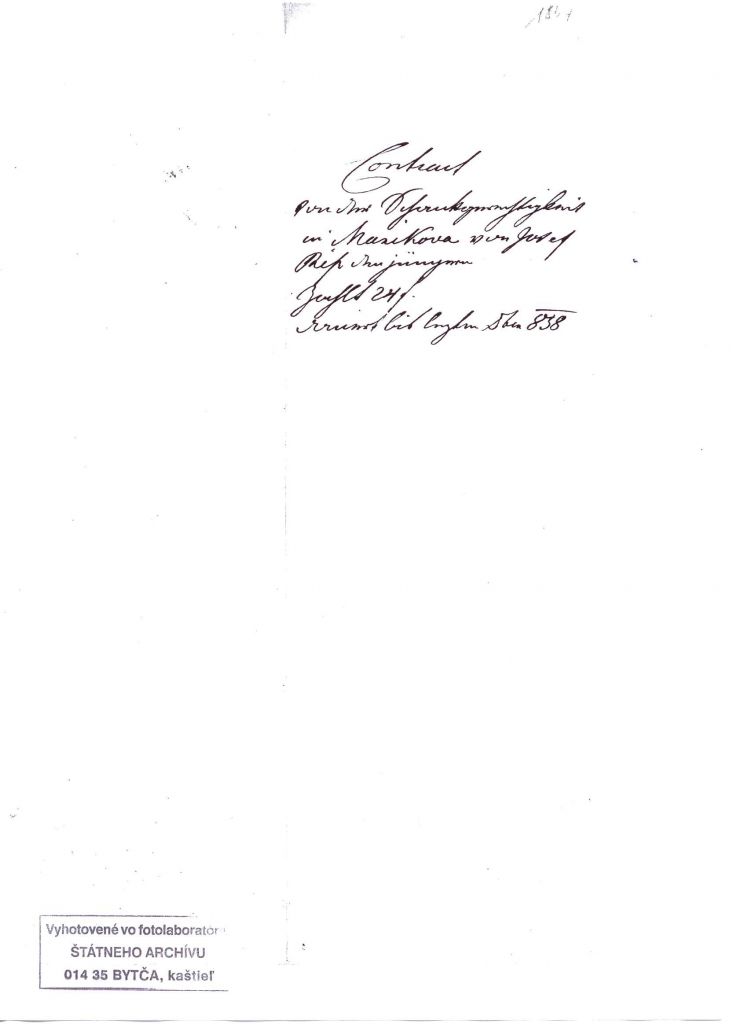 1831
Contract
von der Schankgerechtigkeit
in Marikova von Josef
Reiß den jüngern
Zahlt 24 f.
dauert bis lezten Xber 838
Vyhotovené vo fotolaboratór
ŠTÁTNEHO ARCHÍVU
014 35 BYTČA, kaštieľ